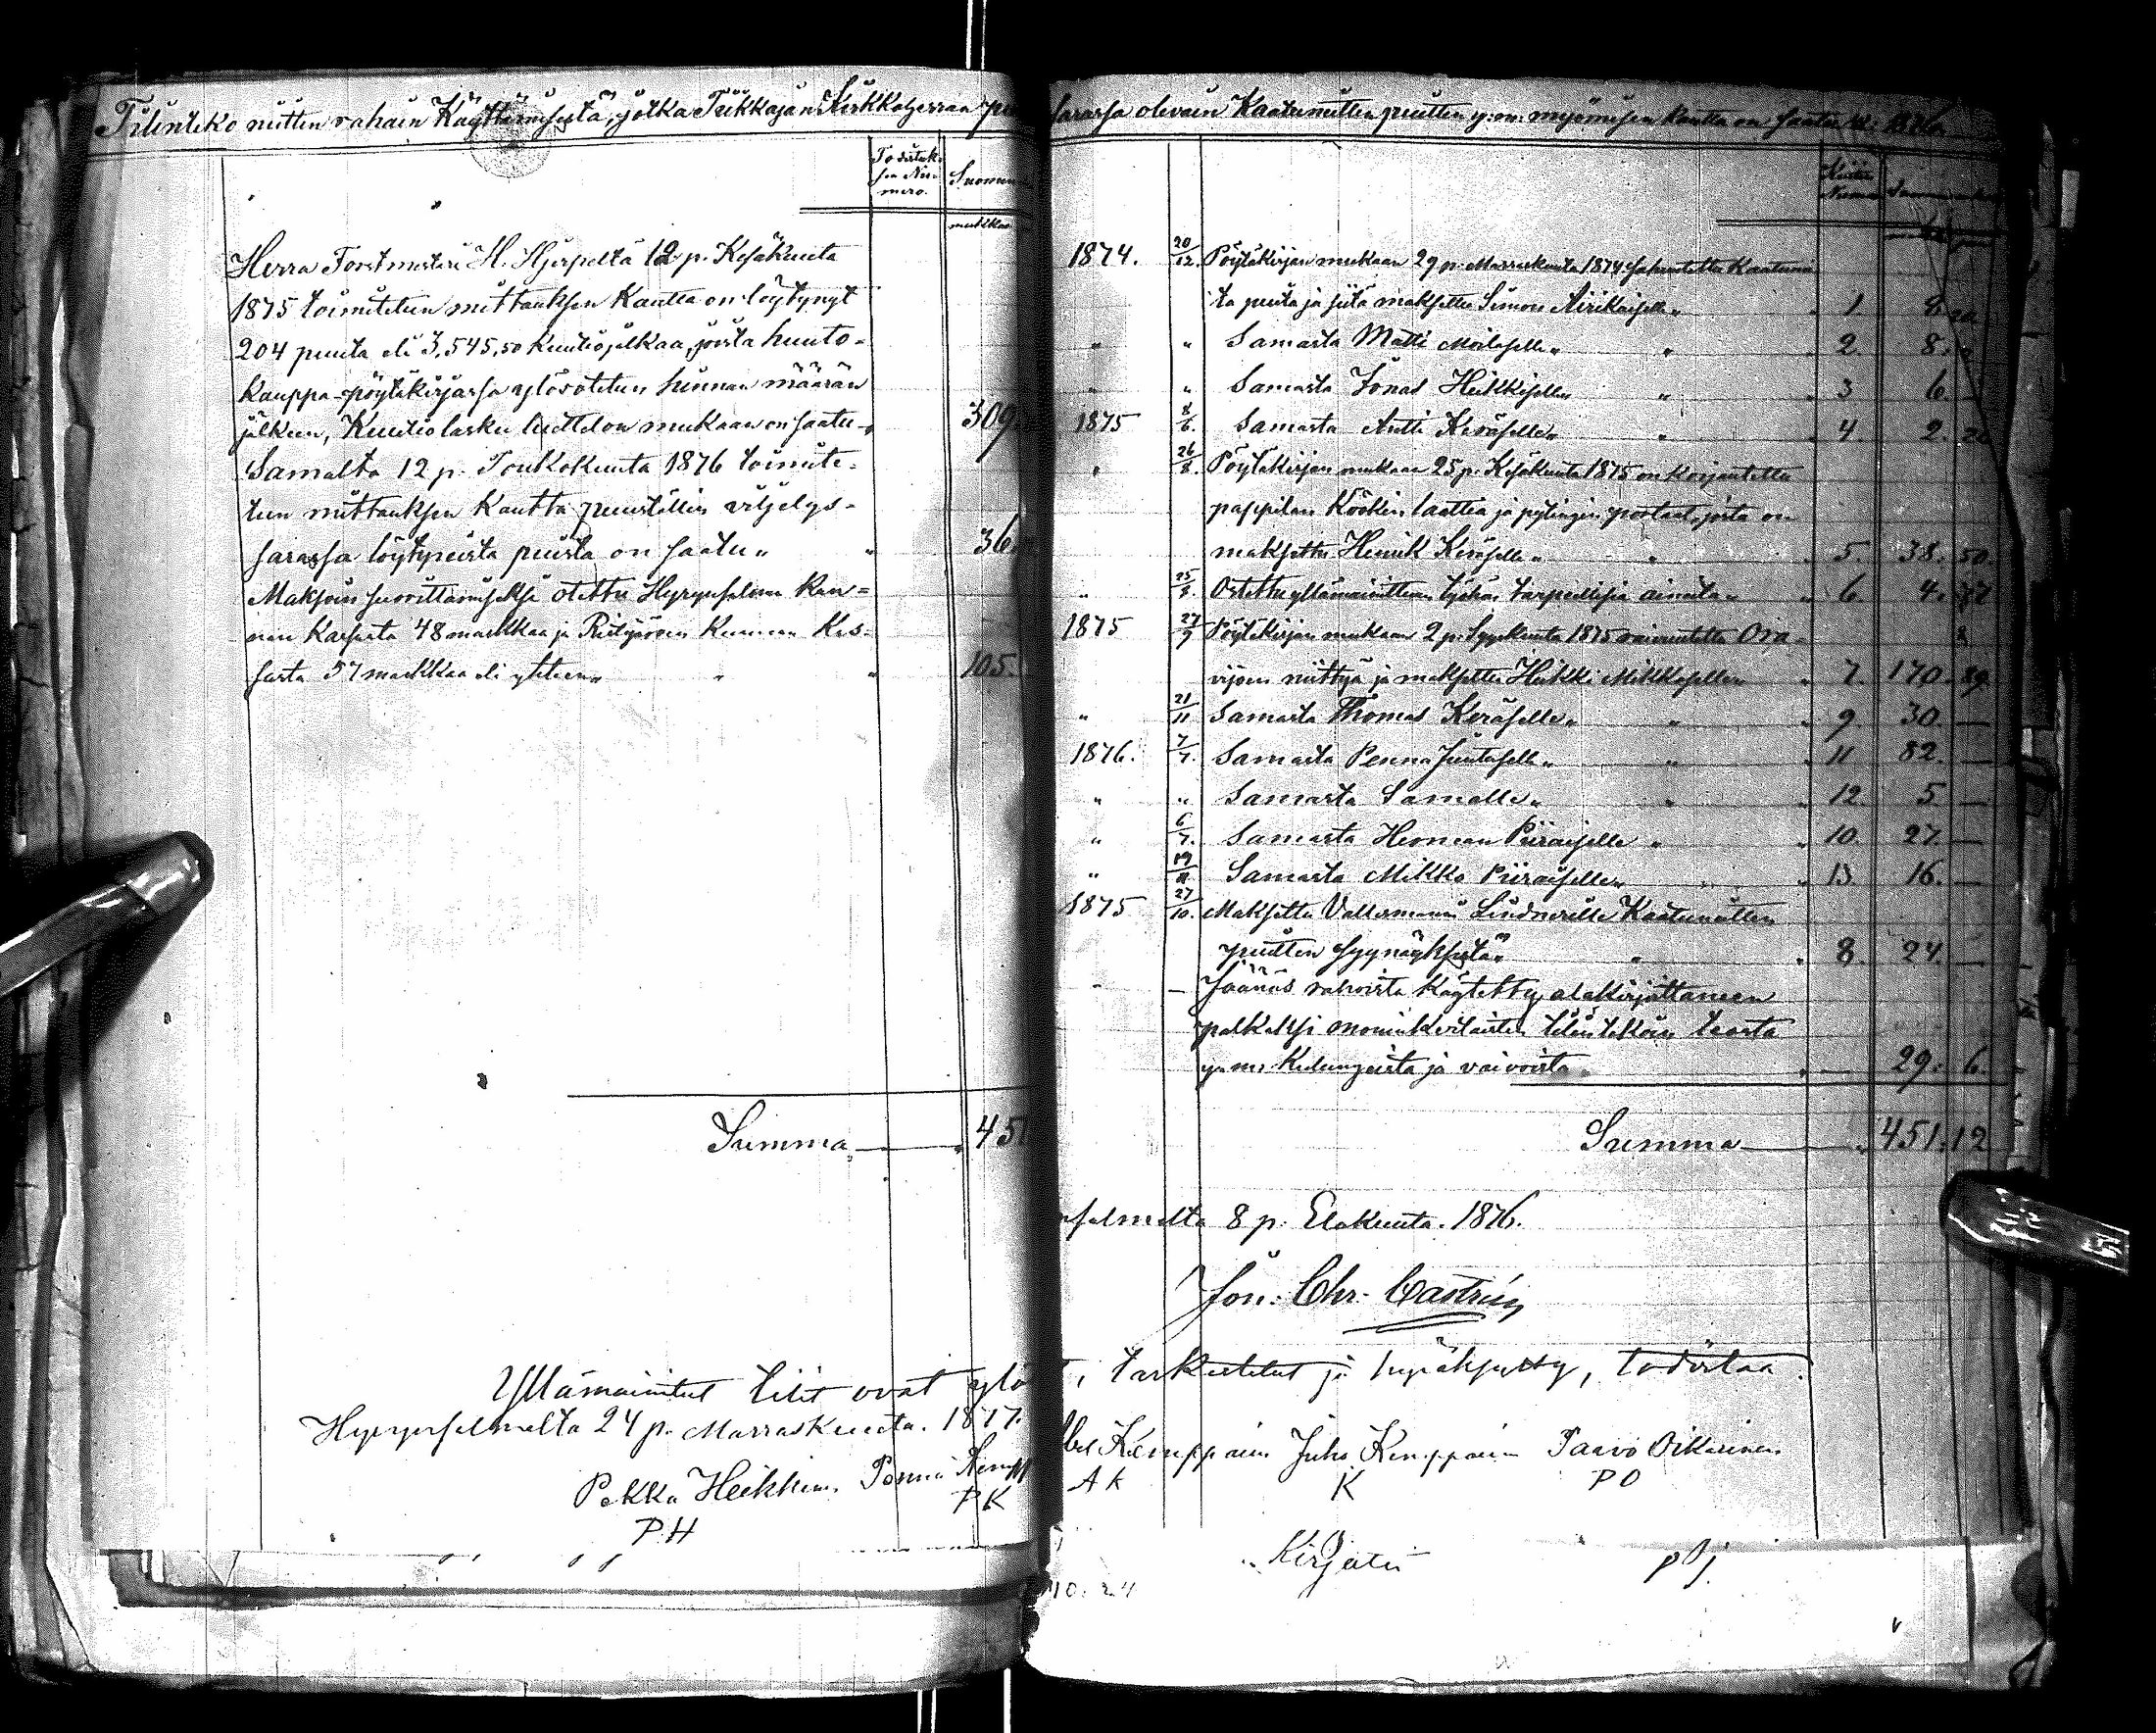 Tilinteko niitten rahain Käyttämisestä, jotka Kirkkoherran
Todistuk-
sen Nu-
mero.
Suomen
markkaa
Herra Forstmestari H. Hjerpeltä 12 p. Kesäkuuta
1875 toimitetun mittauksen Kautta on löytynyt
204 puuta eli 3,545,50 Kuutiojalkaa, josta huuto-
kauppa-pöytäkirjassa ylösotetun hinnan määrän
jälkeen, Kuutiolasku luettelon mukaan on saatu „ 309
Samalta 12 p. Toukokuuta 1876 toimite-
tun mittauksen Kautta puustellin viljelys-
sarassa löytyneistä puista on saatu „ „ 36
Maksoin suorittamiseksi otettu Hyrynsalmen Kun-
nan Kassasta 48 markkaa ja Ristijärven Kunnan Kas-
sasta 57 markkaa eli yhteen „ „ „ 105.
Summa „ 451
sarassa olevain Kaatunutten puitten y: m: myömisen Kautta on saatu
1874. 20/12. Pöytäkirjan mukaan 29 p. Marraskuuta 1874 Kaatunu-
ta puita ja siitä maksettu Simon Airikaiselle „ 1. 8
„ „ Samasta Matti Moilaselle „ „ 2. 8.
„ „ Samasta Jonas Heikkiselle „ „ 3 6
1875 8/6. Samasta Antti Keräselle „ „ 4. 2. 20
„ 26/8. Pöytäkirjan mukaan 25 p. Kesäkuuta 1875 on Korjautettu
pappilan Köökin laattia ja portaat, josta on
maksettu Henrik Keräselle „ „ 5. 38. 50.
„ Ostettu yllämainittuun työhön tarpeellisia aineita „ „ 6. 4.
1875 27/9 Pöytäkirjan mukaan 2 p. Syyskuuta 1875 raivautettu Ora-
vijoen niittyä ja maksettu Heikki Mikkoselle „ „ 7. 170.
„ 21/11 Samasta Thomas Keräselle „ „ 9 30. —
1876. 7/7. Samasta Penna Juntuselle „ „ 11 82. —
„ „ Samasta Samalle „ „ 12. 5 —
„ 6/7. Samasta Herman Piiraiselle „ „ 10. 27. —
„ Samasta Mikko Piiraiselle „ „ 13. 16. —
1875 27/10. Maksettu Vallesmanni Lindnerille Kaatunutten
puitten syynäyksestä „ „ 8 24. —
— Jäänös rahoista Käytetty alakirjuttaneen
palkaksi moninkertaisten tilintekoin teosta
y. m. Kulungeista ja vaivoista „ — 29. 6.
Summa „ 451. 12
nsalmelta 8 p. Elokuuta. 1876.
Jon: Chr. Castrén
Yllämainitut tilit ovat , tarkastetut ja hyväksytty, todistaa
Hyrynsalmelta 24 p. Marraskuuta. 1877.
Pekka Heikkinen Penna Kempp Abel Kemppainen Juho Kemppainen Paavo Oikarinen
P. H P K A K K P O
10. 24